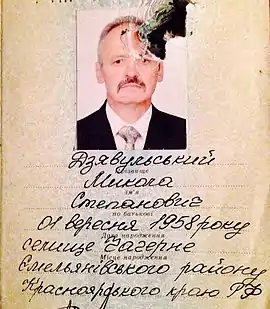 Дзявульський
Прізвище
Микола
ім'я
Степанович
по батькові
01 вересня 1958 року
Дата народження
селище Озерне
Місце народження
Ємельянівського району
Красноярського краю РФ